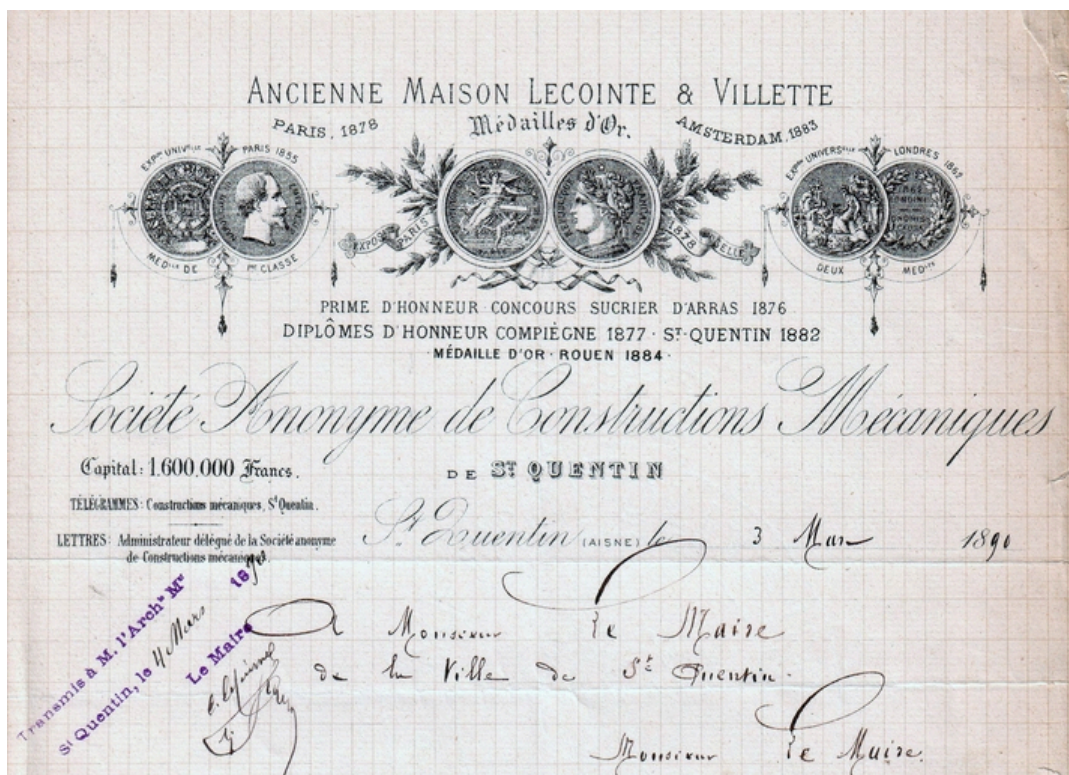 ANCIENNE MAISON LECOINTE & VILLETTE
PARIS, 1878 Médailles d'Or. AMSTERDAM, 1883
EXPON UNIVELLE PARIS 1855
MEDLLE DE 1RE CLASSE
EXPOSI PARIS 1878 SELLE
EXPON UNIVERSELLE LONDRES 1862
DEUX MEDLLES
PRIME D'HONNEUR · CONCOURS SUCRIER D'ARRAS 1876
DIPLÔMES D'HONNEUR COMPIÉGNE 1877 · ST-QUENTIN 1882
· MÉDAILLE D'OR · ROUEN 1884 ·
Société Anonyme de Constructions Mécaniques
DE ST QUENTIN
Capital: 1.600.000 Francs.
TÉLÉGRAMMES: Constructions mécaniques, St Quentin.
LETTRES: Administrateur délégué de la Société anonyme
de Constructions mécaniques.
St Quentin (AISNE) le 3 Mars 1890
Transmis à M. l'Archte Mal
St Quentin, le 4 Mars 1890
Le Maire
A Monsieur le Maire
de la Ville de St Quentin.
Monsieur le Maire.